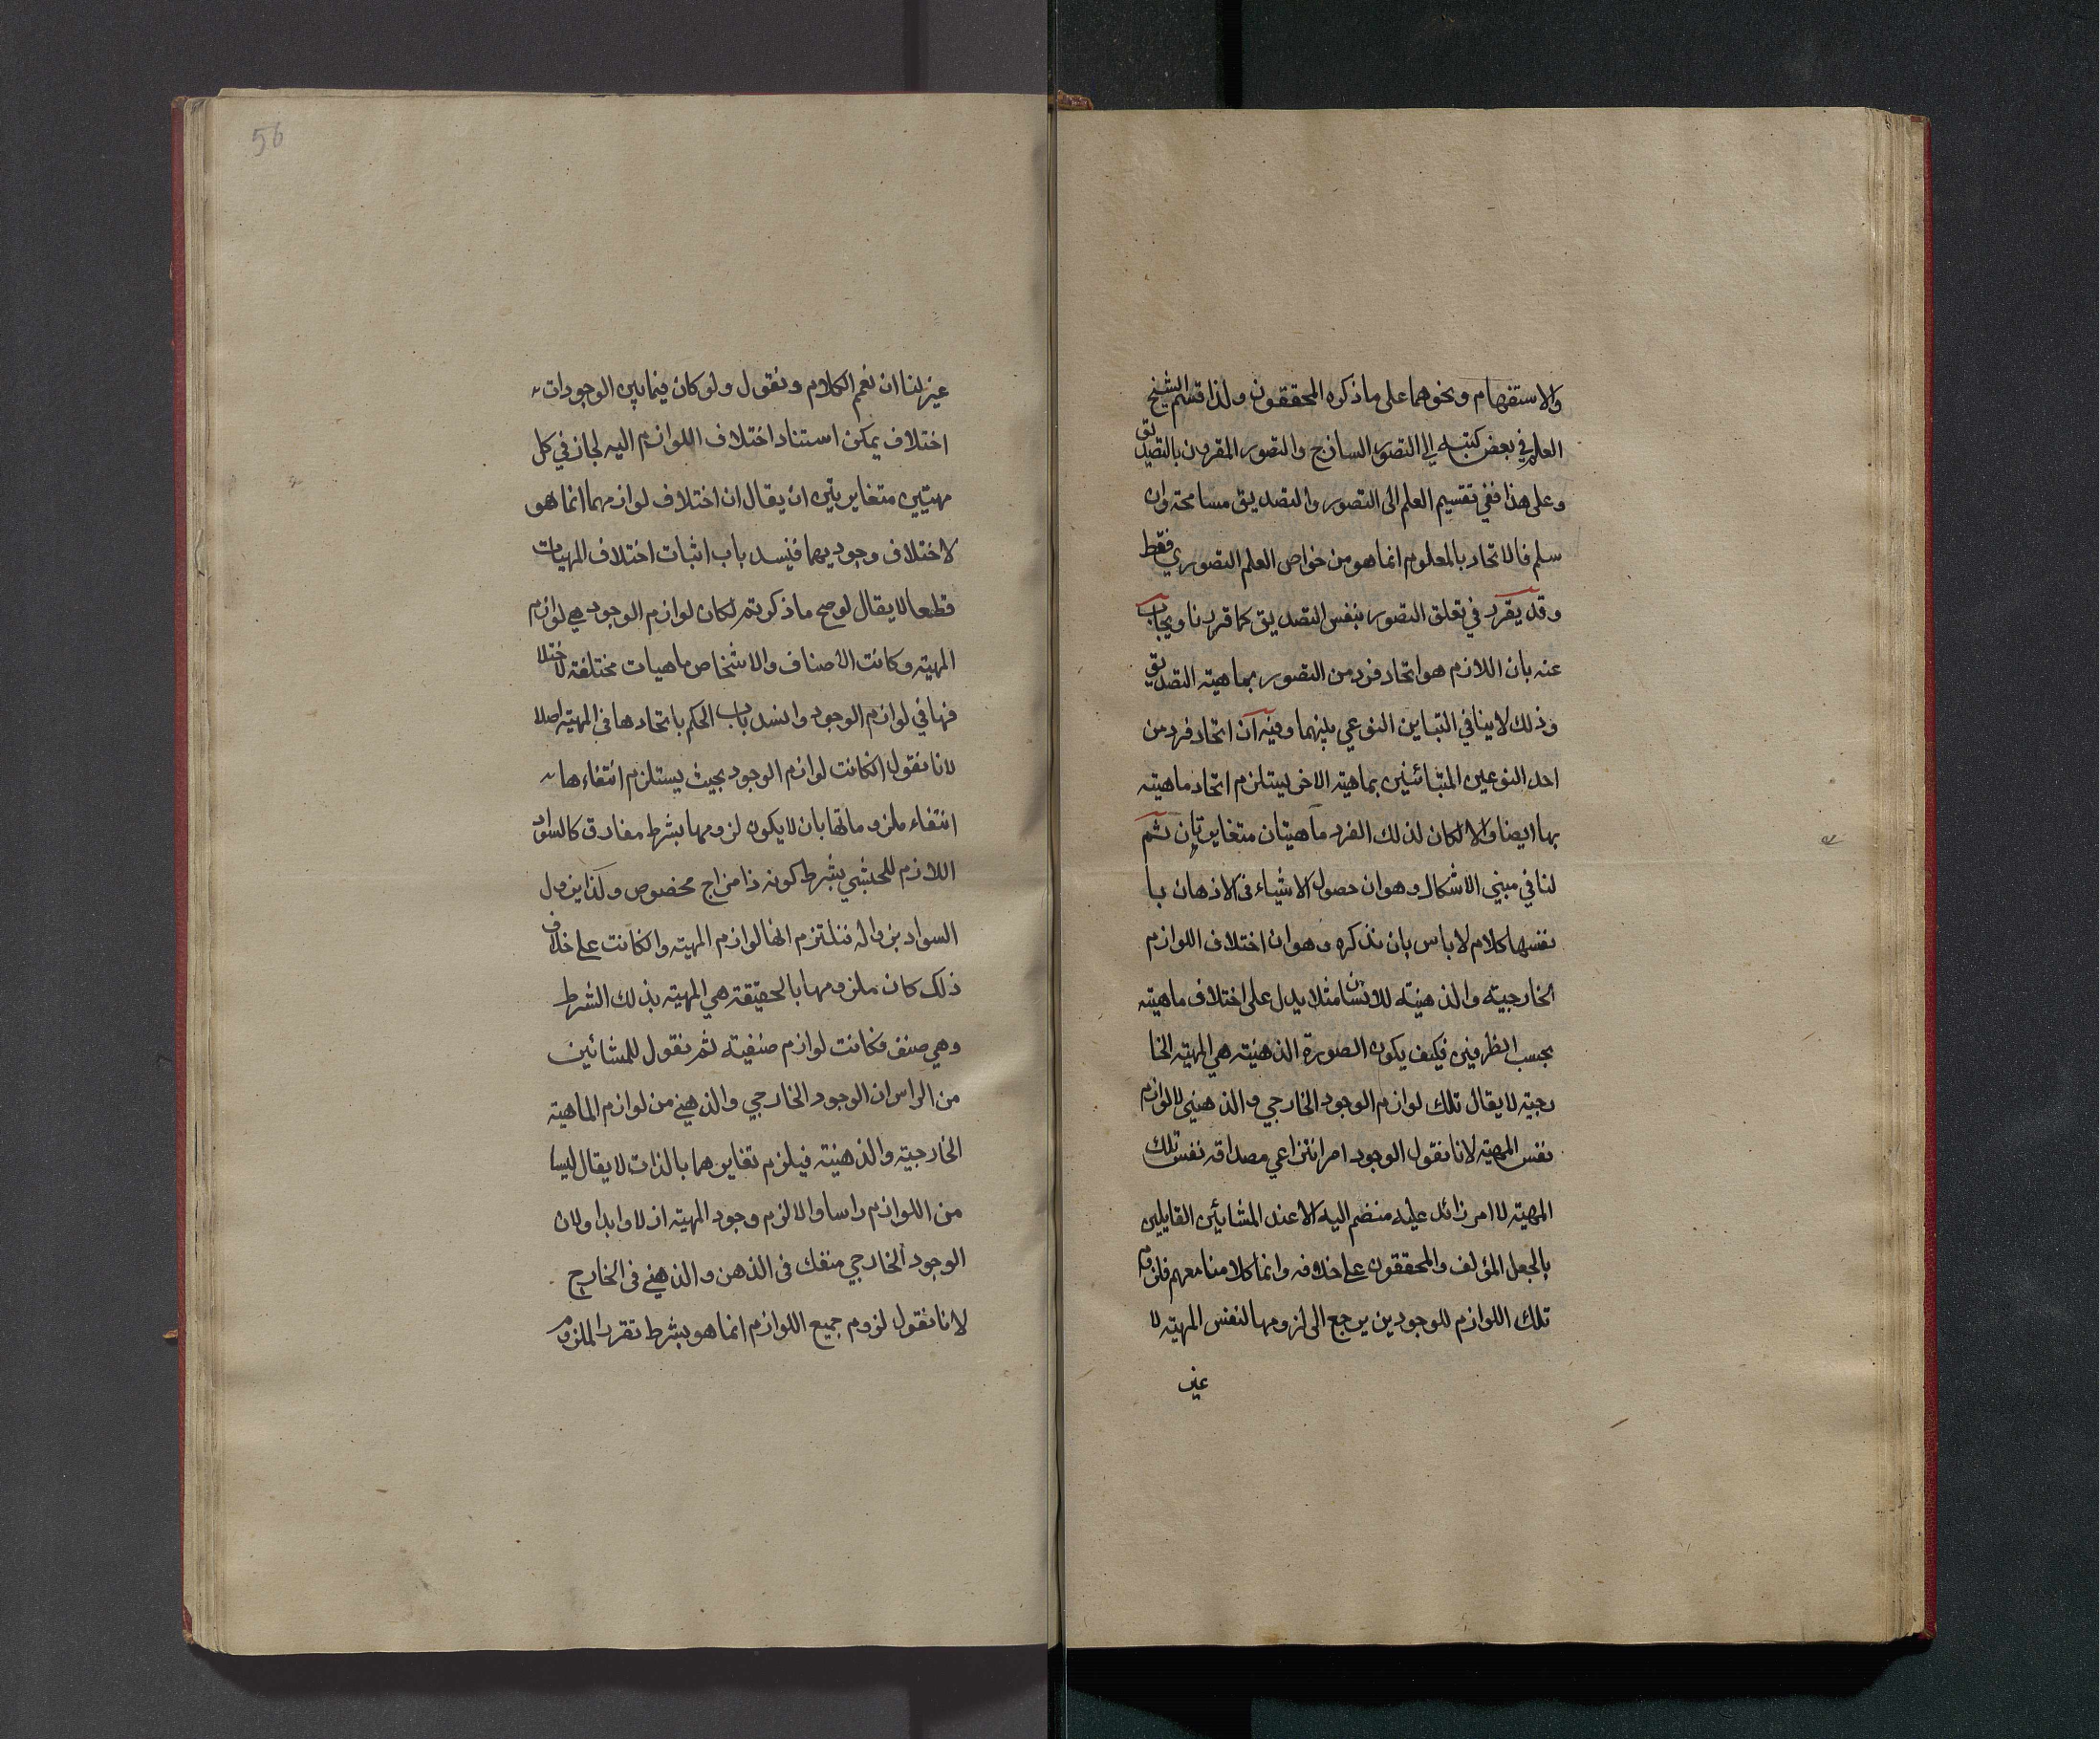 والاستفهام ونحوهما على ما ذكره المحققون ولذا قسم الشيخ
العلم في بعض كتبه الى التصور الساذج والتصور المقرون بالتصديق
وعلى هذا ففي تقسيم العلم الى التصور والتصديق مسامحة وان
سلم فالاتحاد بالمعلوم انما هو من خواص العلم التصوري فقط
وقد يقرر في تعلق التصور بنفس التصديق كما قررنا ويجاب
عنه بان اللازم هو اتحاد فرد من التصور بماهية التصديق
وذلك لا ينافي التباين النوعي بينهما وفيه ان اتحاد فرد من
احد النوعين المتبائنين بماهية الاخر يستلزم اتحاد ماهيته
بها ايضا والا لكان لذلك الفرد ماهيتان متغايرتان ثم
لنا في مبنى الاشكال وهو ان حصول الاشياء في الاذهان با
نفسها كلام لا باس بان نذكره وهو ان اختلاف اللوازم
الخارجية والذهنية للانسان مثلا يدل على اختلاف ماهيته
بحسب الظرفين فكيف يكون الصورة الذهنية هي المهية الخا
رجية لا يقال تلك لوازم الوجود الخارجي والذهني لا لوازم
نفس المهية لانا نقول الوجود امر انتزاعي مصداقه نفس تلك
المهية لا امر زائد عليه منضم اليه الا عند المشائين القايلين
بالجعل المؤلف والمحققون على خلافه وانما كلامنا معهم فلزوم
تلك اللوازم للوجودين يرجع الى لزومها لنفس المهية لا
غير
56
غير لنا ان نعم الكلام ونقول ولو كان فيما بين الوجودات
اختلاف يمكن استناد اختلاف اللوازم اليه لجاز في كل
مهيتين متغايرتين ان يقال ان اختلاف لوازمهما انما هو
لاختلاف وجوديهما فينسد باب اثبات اختلاف المهيات
قطعا لا يقال لو صح ما ذكرتم لكان لوازم الوجود هي لوازم
المهية وكانت الاصناف والاشخاص ماهيات مختلفة لاختلا
فها في لوازم الوجود وانسد باب الحكم باتحادها في المهية اصلا
لانا نقول انكانت لوازم الوجود بحيث يستلزم انتفاءها
انتفاء ملزوماتها بان لا يكون لزومها بشرط مفارق كالسواد
اللازم للحبشي بشرط كونه ذا مزاج مخصوص ولذا يزول
السواد بزواله فنلتزم انها لوازم المهية وانكانت على خلاف
ذلك كان ملزومها بالحقيقة هي المهية بذلك الشرط
وهي صنف فكانت لوازم صنفية ثم نقول للمشائين
من الراس ان الوجود الخارجي والذهني من لوازم الماهية
الخارجية والذهنية فيلزم تغايرهما بالذات لا يقال ليسا
من اللوازم راسا والا لزم وجود المهية ازلا وابدا ولان
الوجود الخارجي منفك في الذهن والذهني في الخارج
لانا نقول لزوم جميع اللوازم انما هو بشرط تقرر الملزوم